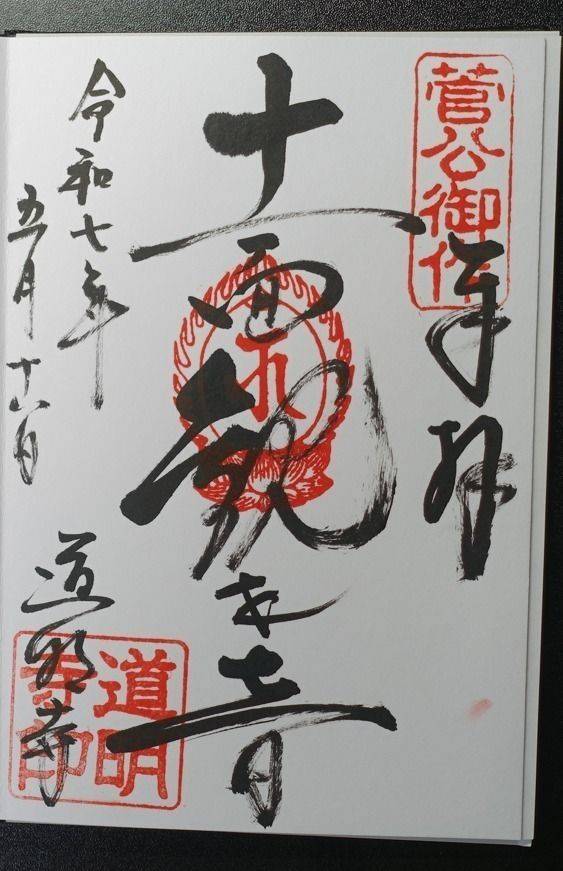 菅公御作
奉拝
十一面観世音
令和七年
五月十六日
道明寺
道明寺印